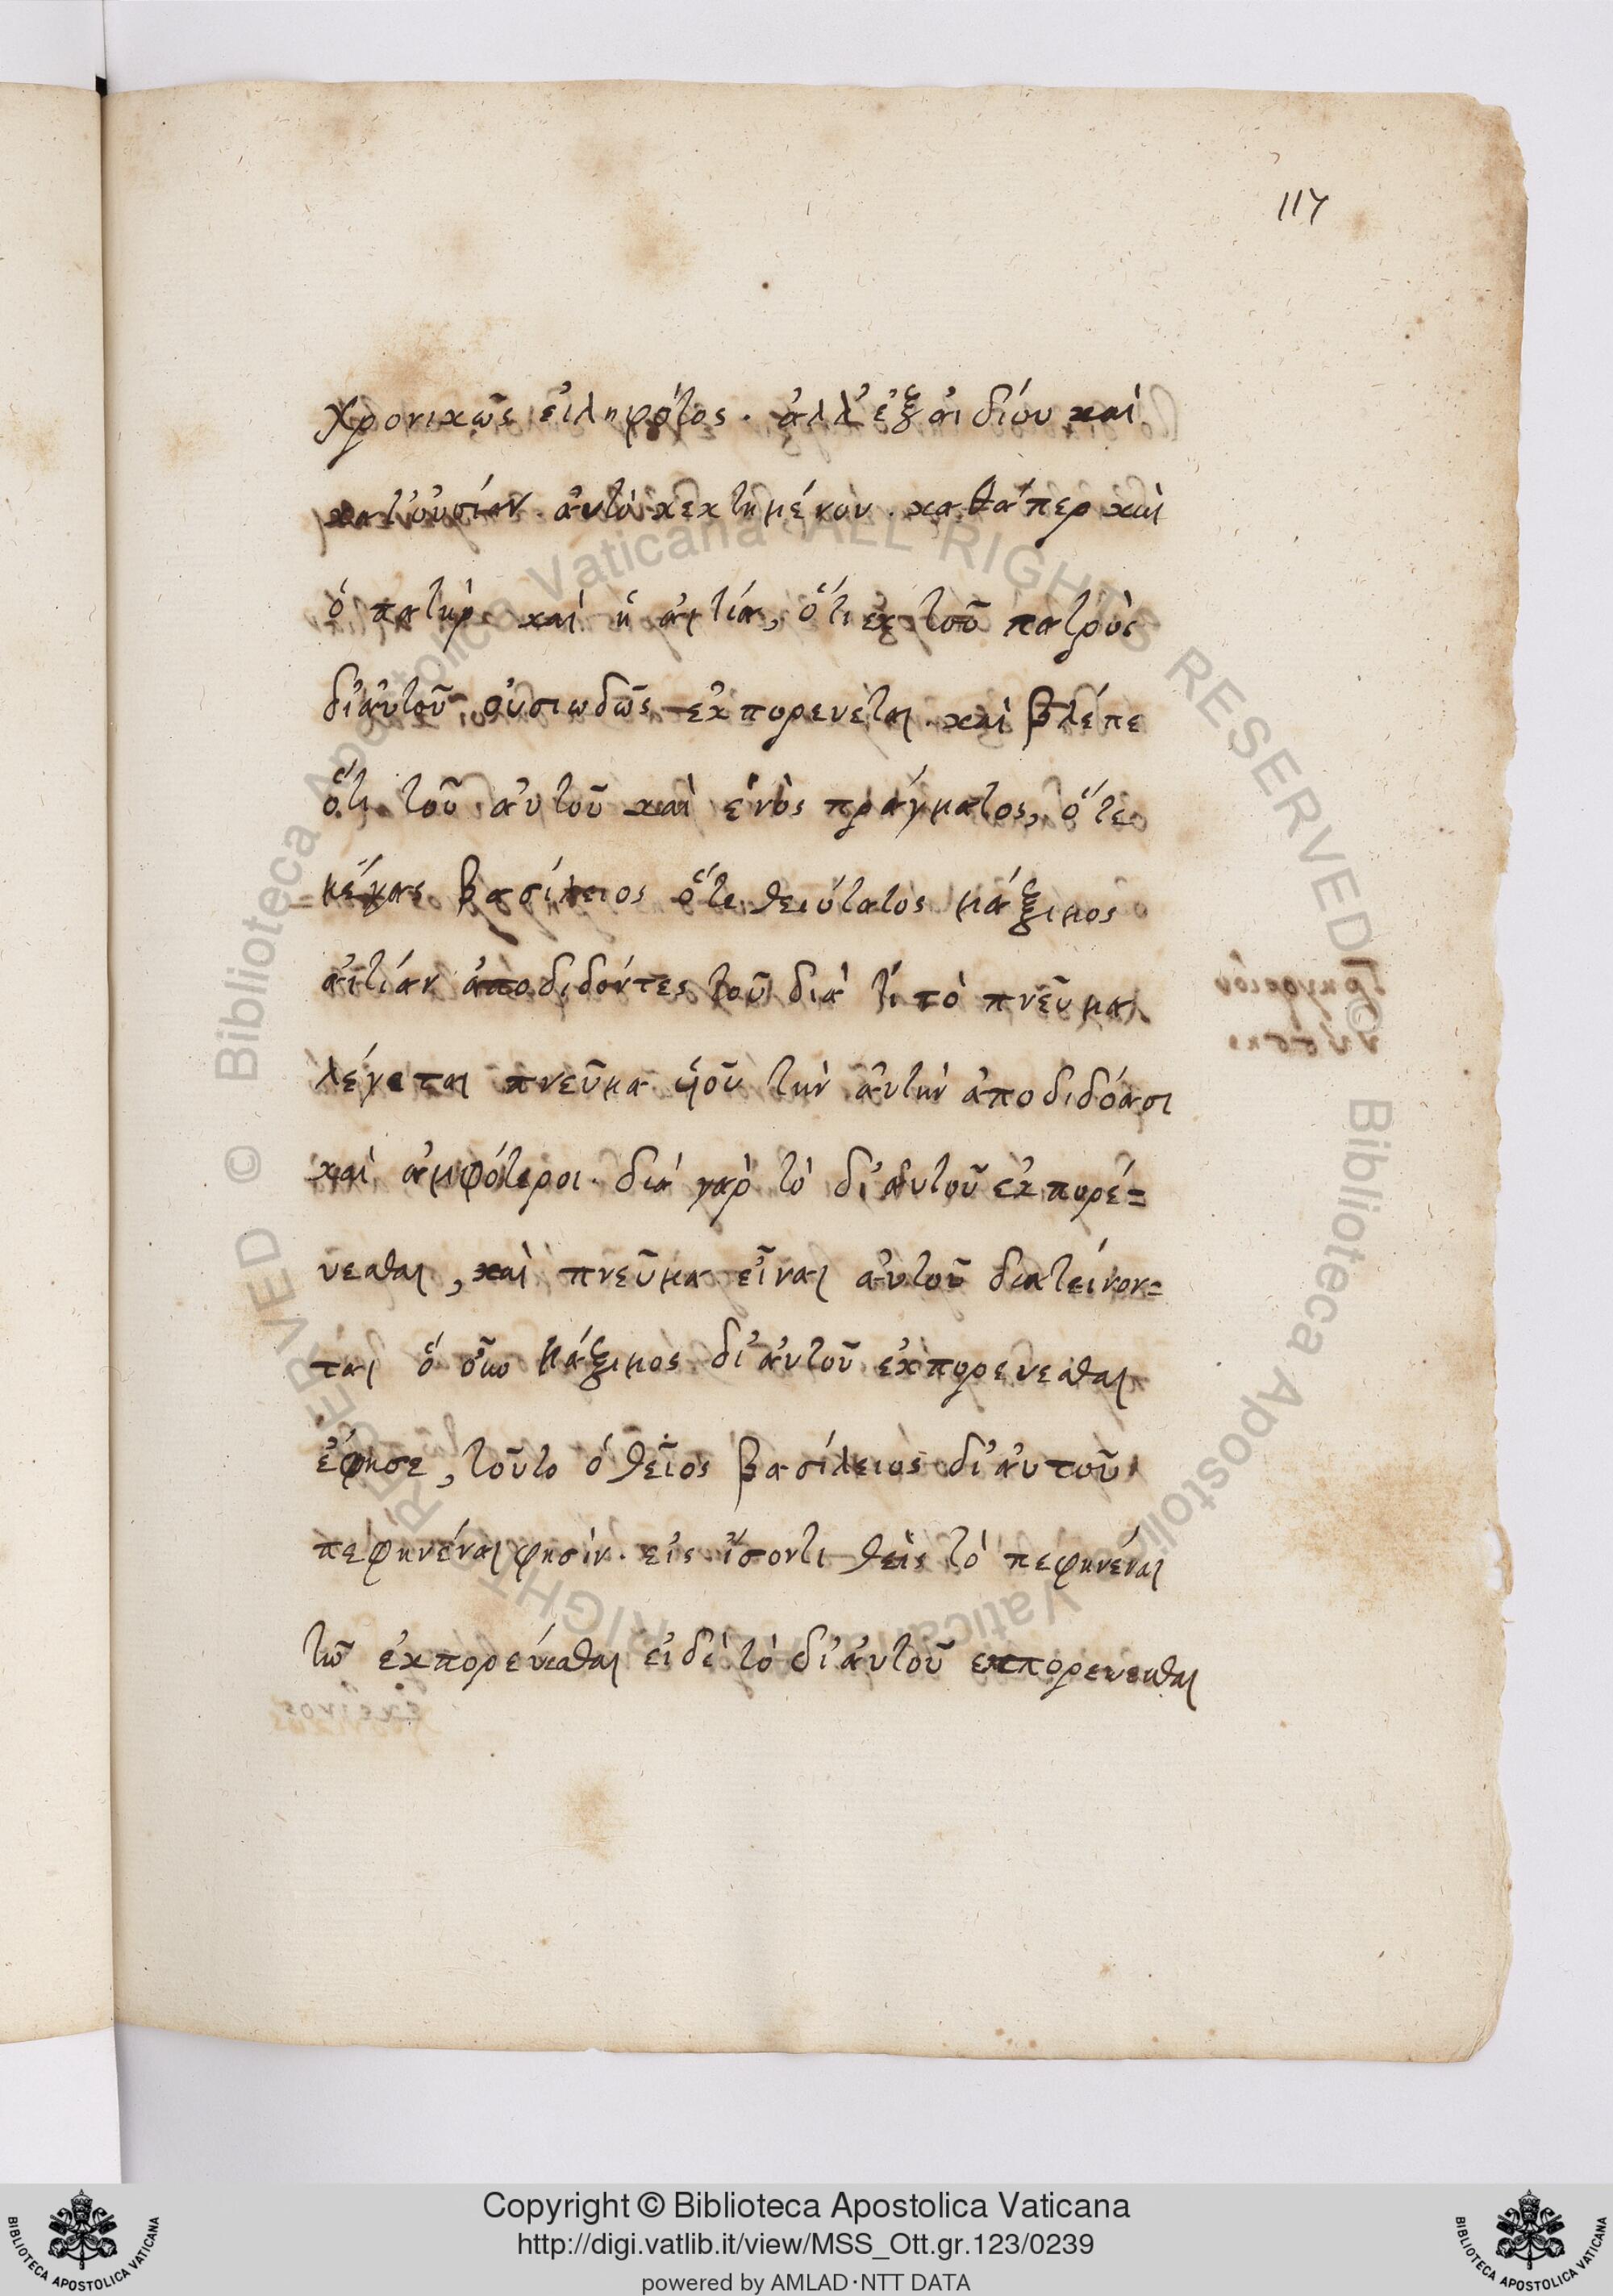 117
χρονικῶς εἰληφότος · ἀλλ' ἐξ ἀϊδίου καὶ
κατ' οὐσίαν αὐτὸ κεκτημένου · καθάπερ καὶ
ὁ πατήρ καὶ ἡ αἰτία, ὅτι ἐκ τοῦ πατρὸς
δι' αὐτοῦ οὐσιωδῶς ἐκπορεύεται · καὶ βλέπε
ὅτι τοῦ αὐτοῦ καὶ ἑνὸς πράγματος, ὅτε
μέγας βασίλειος ὅτε θειότατος μάξιμος
αἰτίαν ἀποδιδόντες τοῦ διὰ τί τὸ πνεῦμα
λέγεται πνεῦμα υἱοῦ τὴν αὐτὴν ἀποδιδόασι
καὶ ἀμφότεροι · διὰ γὰρ τὸ δι' αὐτοῦ ἐκπορέ=
υεσθαι, καὶ πνεῦμα εἶναι αὐτοῦ διατείνον=
ται ὁ μάξιμος δι' αὐτοῦ ἐκπορευεσθαι
ἔφησε, τοῦτο ὁ θεῖος βασίλειος δι' αὐτοῦ
πεφηνέναι φησὶν · εἰς ἴσον τι θεὶς τὸ πεφηνέναι
τῶ ἐκπορεύεσθαι εἰ δὲ τὸ δι' αὐτοῦ ἐκπορευεσθαι
Copyright © Biblioteca Apostolica Vaticana
http://digi.vatlib.it/view/MSS_Ott.gr.123/0239
powered by AMLAD·NTT DATA
BIBLIOTECA APOSTOLICA VATICANA
BIBLIOTECA APOSTOLICA VATICANA
© Biblioteca Apostolica Vaticana ALL RIGHTS RESERVED
© Biblioteca Apostolica Vaticana ALL RIGHTS RESERVED